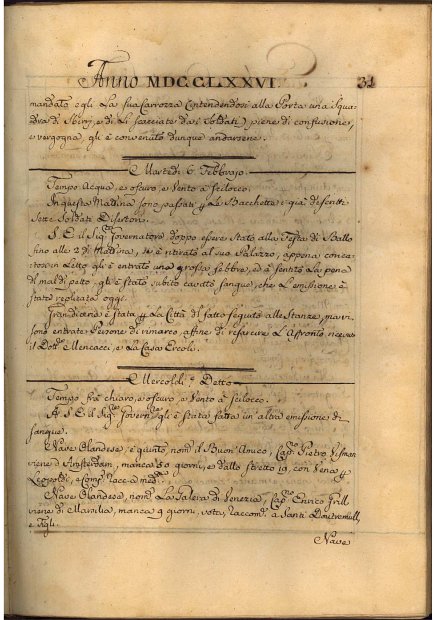 Anno MDCCLXXVI. 31
mandato egli La sua Carrozza Contendendosi alla Porta una Squa=
dra di Sbirri, e di Li scacciate dai Soldati) piene di confusione,
e vergogna gli è convenuto dunque andarsene.
Martedì 6 Febbrajo.
Tempo Acqua, e oscuro, e Vento a Scilocco.
In questa Mattina sono passati Le Bacchette i già descritti
Sette Soldati Disertori.
S. E. il Sig.re Governatore doppo essere Stato alla Festa di Ballo
fino alle 2 di Mattina, si è ritirato al suo Palazzo, appena corica=
tosi in Letto gli è entrato una grossa febbre, ed è sentito La pena
di mal di petto, gli è stato subito cavato sangue, che L'emissione è
stata replicata oggi.
Grandissimo è stata La Città il fatto seguito alle Stanze, ma vi
sono entrate Persone di rimarco affine di risarcire L'Affronto ricevuto
il Dott. Mencacci, e La Casa Ercoli.
Mercoledì 7 Detto
Tempo frà chiaro, e oscuro, e Vento a Scilocco.
A S. E. il Sig.re Govern.re gli è stata fatta un'altra emissione di
Sangue.
Nave Olandese, è giunto nom. il Buon Amico, Cap.no Pietro
viene d'Amsterdam, manca 50 giorni, e dallo Stretto 19, con Rena
Leopoldi, e Comp. racc. a med.
Nave Olandese, nom. La Galera di Venezia, Cap.no Enrico Grill,
viene di Marsilia, manca 9 giorni, vota, Raccom. a Santi Doutremoull,
e Figli.
Nave